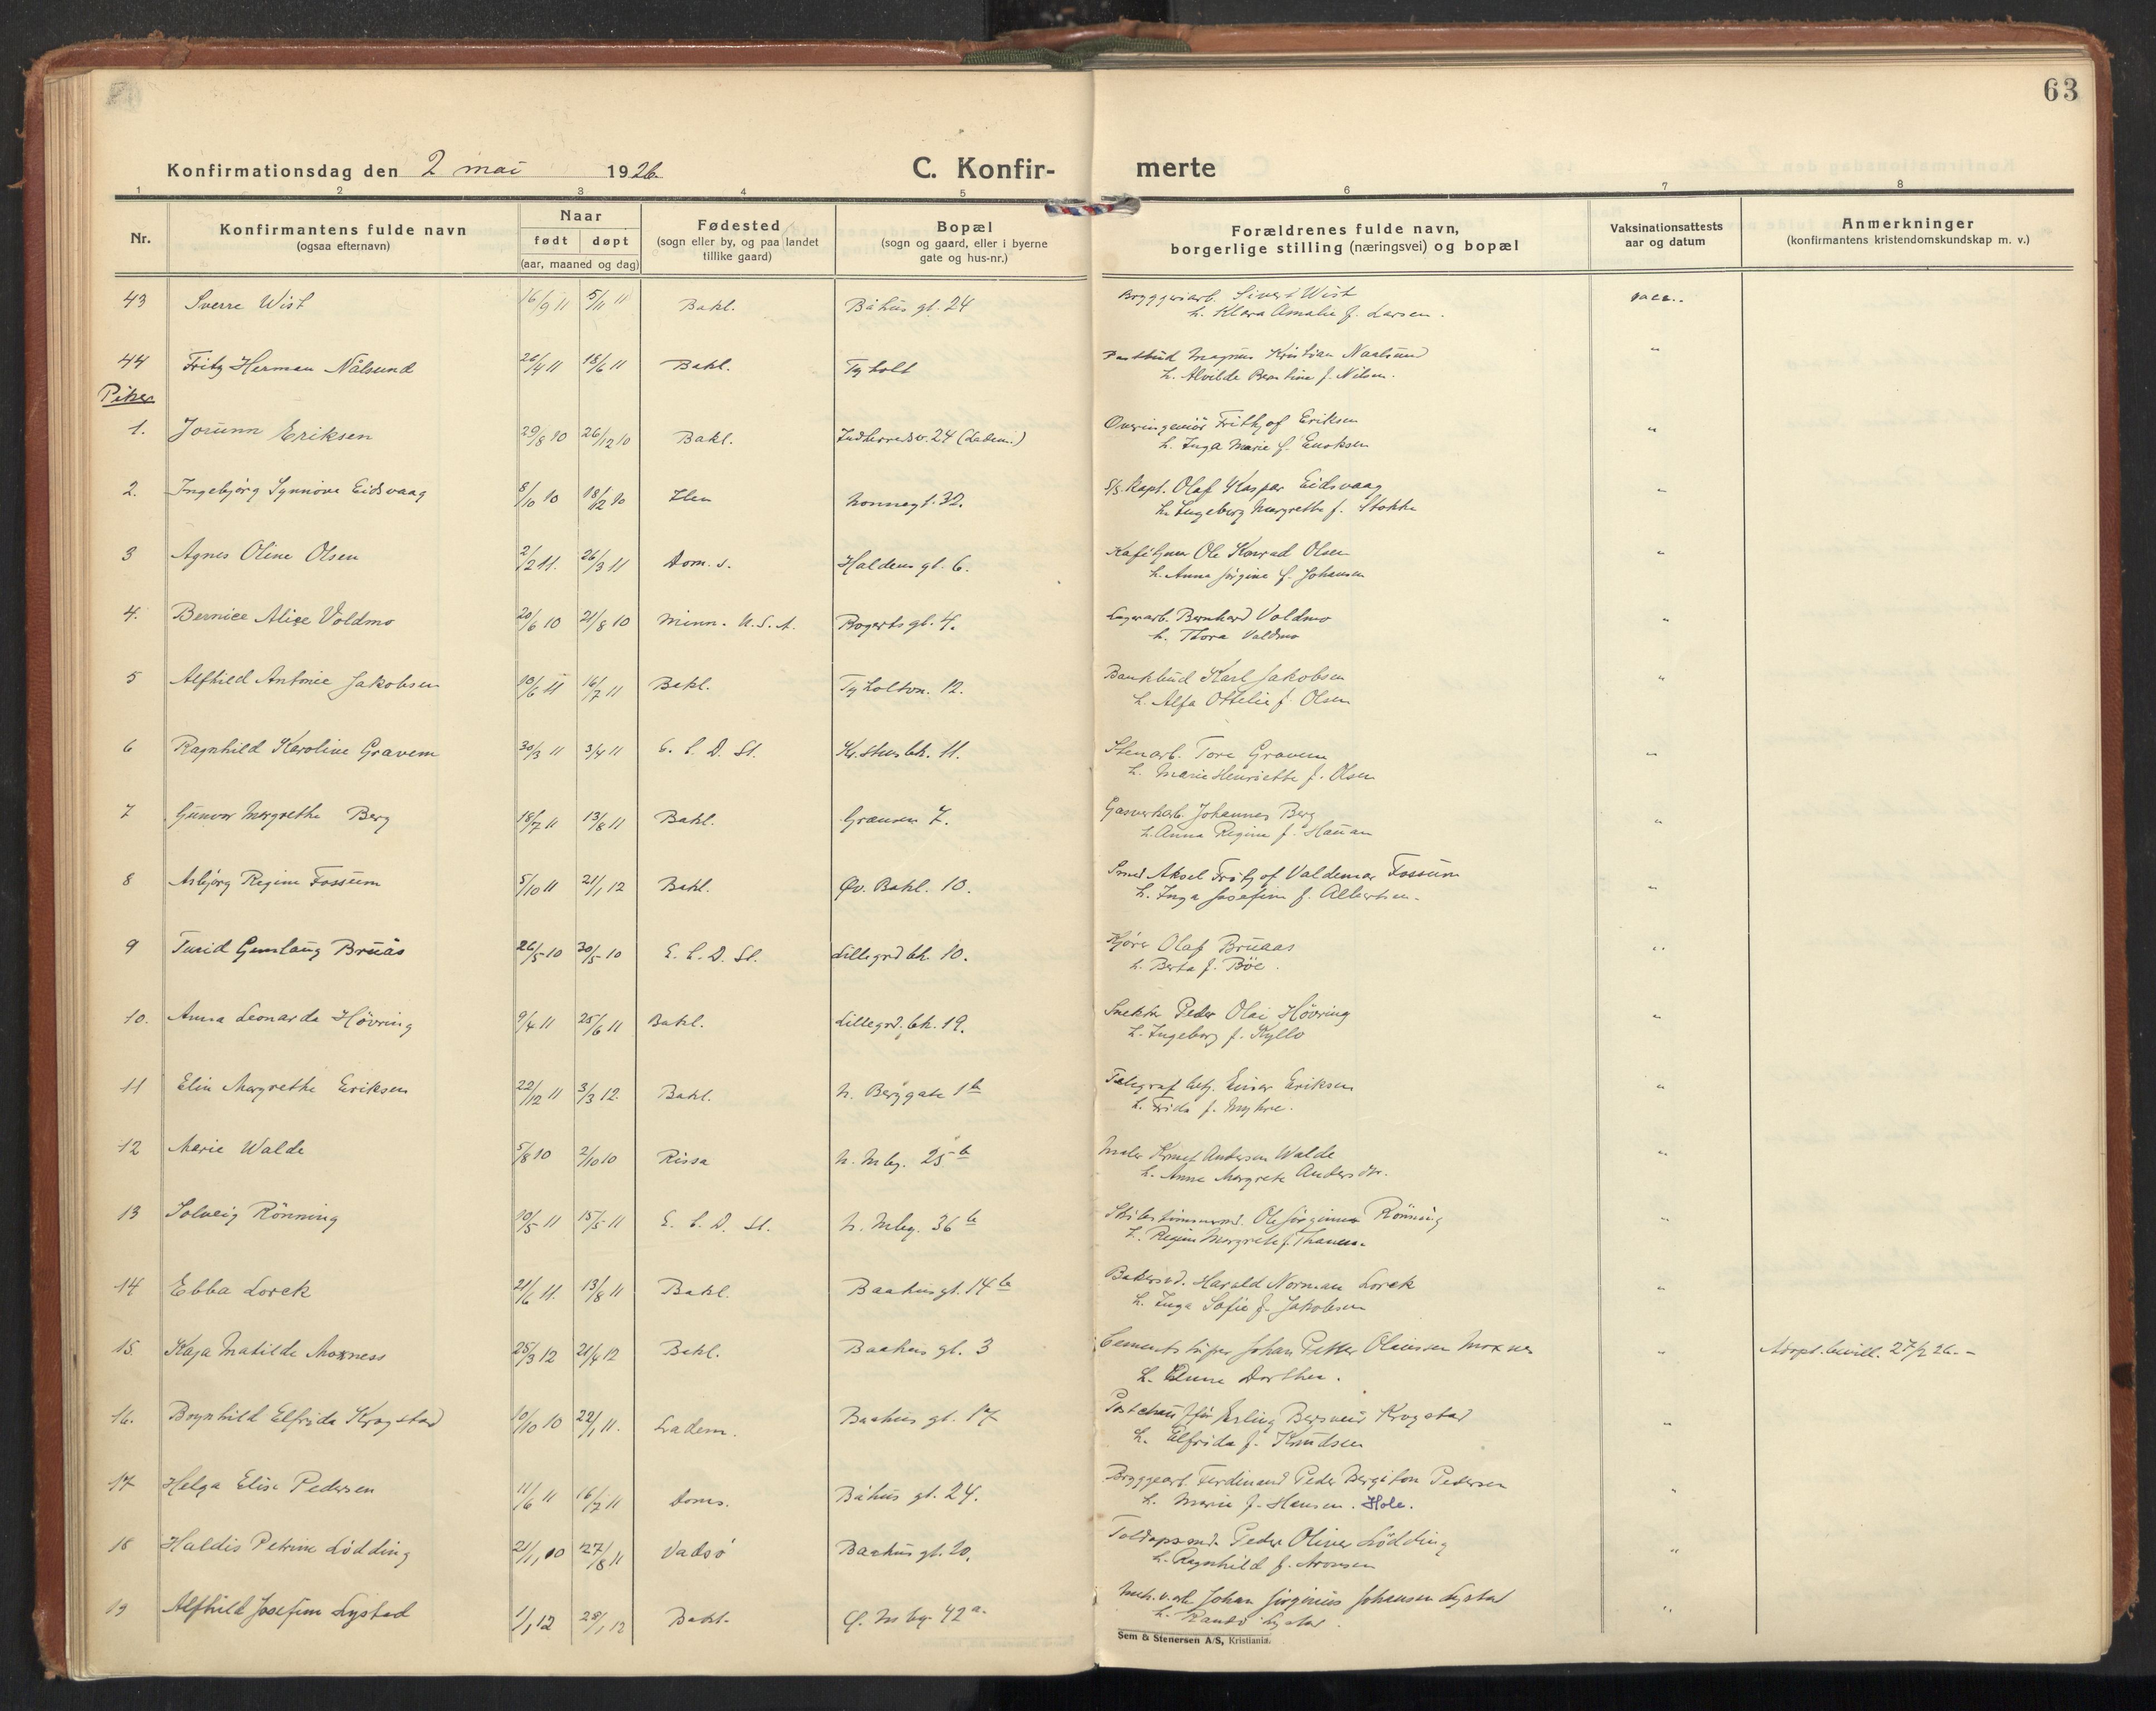 63
Konfirmationsdag den 2 mai 1926.
C. Konfir- merte
1 2 3 4 5 6 7 8
Nr.
Konfirmantens fulde navn
(ogsaa efternavn)
Naar
født døpt
(aar, maaned og dag)
Fødested
(sogn eller by, og paa landet
tillike gaard)
Bopæl
(sogn og gaard, eller i byerne
gate og hus-nr.)
Forældrenes fulde navn,
borgerlige stilling (næringsvei) og bopæl
Vaksinationsattests
aar og datum
Anmerkninger
(konfirmantens kristendomskundskap m. v.)
43 Sverre Wist 16/9 11 5/11 11 Bakl. Båhus gt. 24 Bryggeriarb. Sivert Wist vacc.
h. Klara Amalie f. Larsen.
44 Fritz Herman Nålsund 26/4 11 18/6 11 Bakl. Tyholt Postbud Magnus Kristian Naalsund "
h. Alvilde Berntine f. Nilsen.
Piker
1. Jorunn Eriksen 29/8 10 26/12 10 Bakl. Indherredsv. 24 (Ladem.) Overingeniør Frithjof Eriksen "
h. Inga Marie f. Enoksen
2. Ingebjørg Synnöve Eidsvaag 8/10 10 18/12 10 Ilen Nonnegt. 32. S/S. Kapt. Olaf Kaspar Eidsvaag "
h. Ingeborg Margrethe f. Stokke
3 Agnes Oline Olsen 2/2 11. 26/3 11 Dom. s. Haldens gt. 6. Ole Konrad Olsen "
h. Anna Jörgine f. Johansen
4. Bernice Alice Voldmo 20/6 10 21/8 10 Minn. U.S.A. Rogerts gt. 4. Lagerarb. Bernhard Voldmo "
h. Thora Voldmo
5 Alfhild Antonie Jakobsen 10/6 11 16/7 11 Bakl. Tyholtv. 12. Bankbud Karl Jakobsen "
h. Alfa Ottelie f. Olsen
6 Ragnhild Karoline Gravem 30/3 11 3/4 11 E. C. D. St. Kr.stensbk. 11. Stenarb. Tore Gravem "
h. Marie Henriette f. Olsen
7 Gunvor Margrethe Berg 18/7 11 13/8 11 Bakl. Grensen 7. Gasverkarb. Johannes Berg "
h. Anna Regine f. Hauan
8 Asbjørg Regine Fossum 5/10 11 21/1 12 Bakl. Øv. Bakl. 10. Smed Aksel Fritjof Valdemar Fossum "
h. Inga Josefine f. Albertsen.
9 Turid Gunlaug Bruås 26/5 10 30/5 10 E. C. D. St. Lillegrdbk. 10. Kjører Olaf Bruaas "
h. Berta f. Böe.
10. Anna Leonarda Hövring 9/4 11 25/6 11 Bakl. Lillegrd.bk. 19. Snekker Peder Olai Hövring "
h. Ingeborg f. Kyllo
11 Elin Margrethe Eriksen 22/12 11 3/3 12. Bakl. N. Berggate 1b Telegrafbetj. Einar Eriksen "
h. Frida f. Myhre.
12 Marie Walde 5/8 10 2/10 10 Rissa N. Mbg. 25b Maler Knut Andersen Walde "
h. Anne Margrete Andersdtr.
13 Solveig Rönning 10/5 11 15/5 11 E. C. D. St. N. Mbg. 36b Skibstömmermd. Ole Jörginus Rönning "
h. Regine Margrete f.
14 Ebba Lorck 21/6 11. 13/8 11 Bakl. Baahus gt. 14b Bakersv. Harald Norman Lorck "
h. Inga Sofie f. Jakobsen
15. Kaja Matilde Moxness 25/3 12 21/4 12 Bakl. Baahus gt. 3 Cementstøper Johan Petter Olausen Moxnes " Adopt. bevill. 27/2 26. -
h. Anne Dorthea.
16. Bergnhild Elfrida Krogstad 10/10 10 22/1 11. Ladem. Baahus gt. 17 Postchauffør Erling Bersvein Krogstad "
h. Elfrida f. Knudsen
17 Helga Elise Pedersen 11/6 11 16/7 11 Doms. Båhus gt. 24. Bryggearb. Ferdinand Peder Bergiton Pedersen "
h. Marie f. Hansen. Hole.
18 Haldis Petrine Lödding 21/1, 10 27/8 11 Vadsö Baahus gt. 20, Toldopsmd. Peder Oliver Lödding "
h. Ragnhild f. Aronsen
19 Alfhild Josefine Lystad 1/1, 12 28/1, 12 Bakl. Ø. Mbg. 42a. Mek. v. arb. Johan Jörginius Johansen Lystad "
h. Randi Lystad.
Sem & Stenersen A/S, Kristiania.